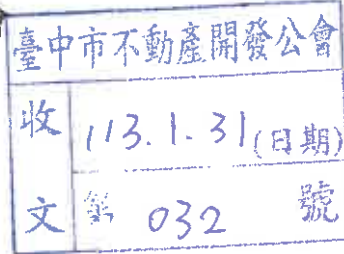 臺中市不動產開發公會
收 113.1.31(日期)
文 第 032 號